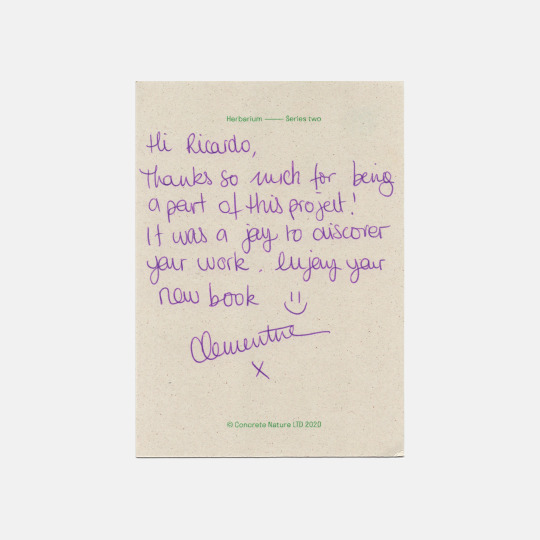 Herbarium —— Series two
Hi Ricardo,
Thanks so much for being
a part of this project!
It was a joy to discover
your work. Enjoy your
new book
Clementine
x
© Concrete Nature LTD 2020